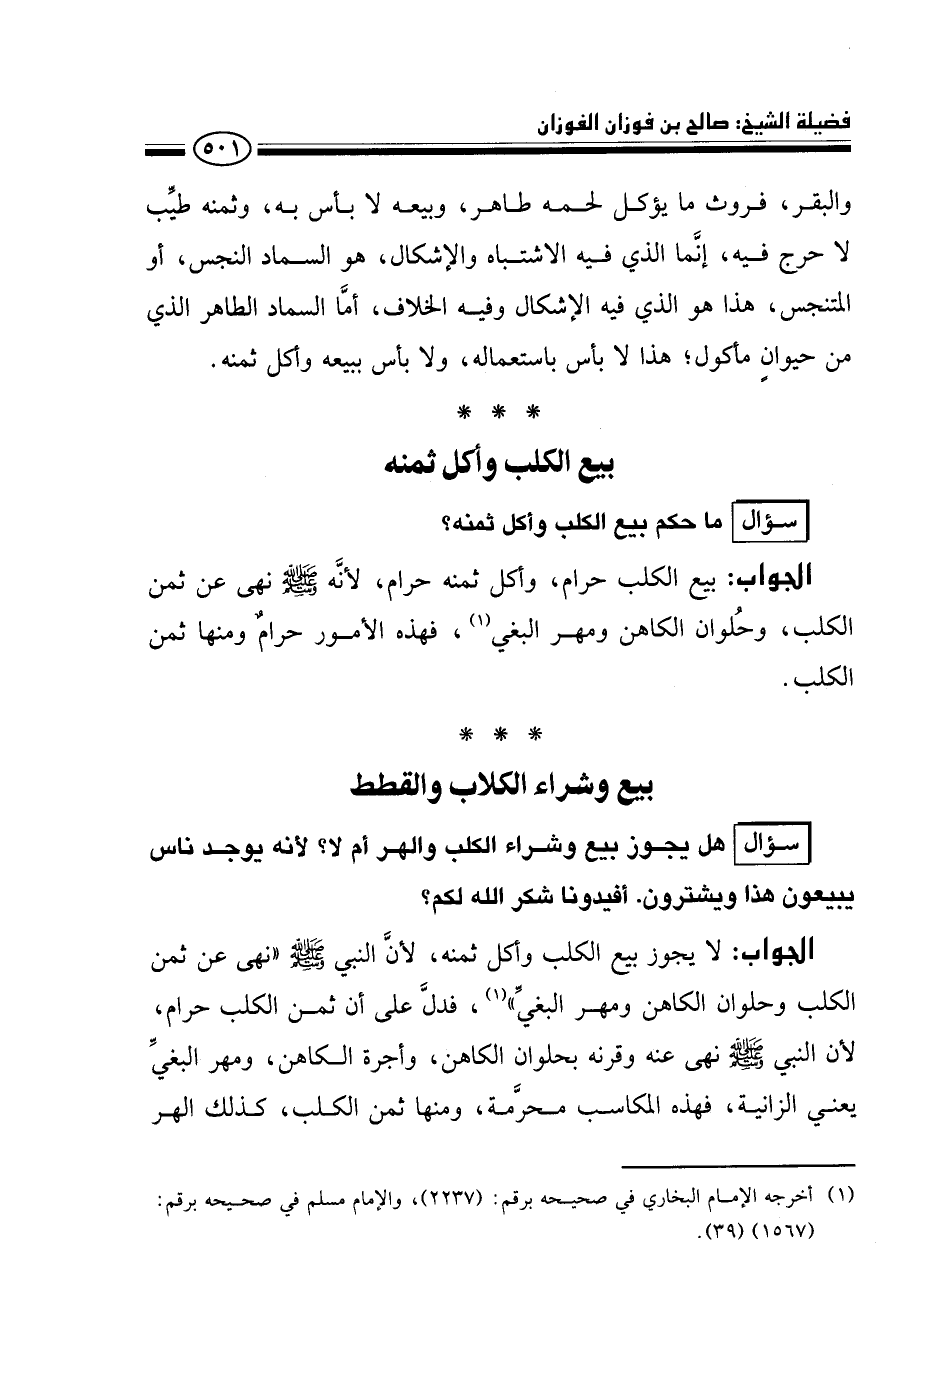 فضيلة الشيخ: صالح بن فوزان الفوزان
٥٠١
والبقر، فروث ما يؤكل لحمه طاهر، وبيعه لا بأس به، وثمنه طيِّب
لا حرج فيه، إنَّما الذي فيه الاشتباه والإشكال، هو السماد النجس، أو
المتنجس، هذا هو الذي فيه الإشكال وفيه الخلاف، أمَّا السماد الطاهر الذي
من حيوانٍ مأكول؛ هذا لا بأس باستعماله، ولا بأس ببيعه وأكل ثمنه.
* * *
بيع الكلب وأكل ثمنه
سؤال ما حكم بيع الكلب وأكل ثمنه؟
الجواب: بيع الكلب حرام، وأكل ثمنه حرام، لأنَّه ﷺ نهى عن ثمن
الكلب، وحُلوان الكاهن ومهر البغي(١)، فهذه الأمور حرامٌ ومنها ثمن
الكلب.
* * *
بيع وشراء الكلاب والقطط
سؤال هل يجوز بيع وشراء الكلب والهر أم لا؟ لأنه يوجد ناس
يبيعون هذا ويشترون. أفيدونا شكر الله لكم؟
الجواب: لا يجوز بيع الكلب وأكل ثمنه، لأنَّ النبي ﷺ «نهى عن ثمن
الكلب وحلوان الكاهن ومهر البغيِّ»(١)، فدلَّ على أن ثمن الكلب حرام،
لأن النبي ﷺ نهى عنه وقرنه بحلوان الكاهن، وأجرة الكاهن، ومهر البغيِّ
يعني الزانية، فهذه المكاسب محرَّمة، ومنها ثمن الكلب، كذلك الهر
(١) أخرجه الإمام البخاري في صحيحه برقم: (٢٢٣٧)، والإمام مسلم في صحيحه برقم:
(١٥٦٧) (٣٩).